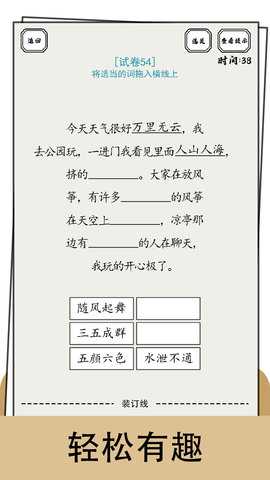 返回
通关
查看提示
时间:38
[试卷54]
将适当的词拖入横线上
今天天气很好万里无云，我
去公园玩，一进门我看见里面人山人海，
挤的________。大家在放风
筝，有许多________的风筝
在天空上________，凉亭那
边有________的人在聊天，
我玩的开心极了。
随风起舞
三五成群
五颜六色 水泄不通
装订线
轻松有趣